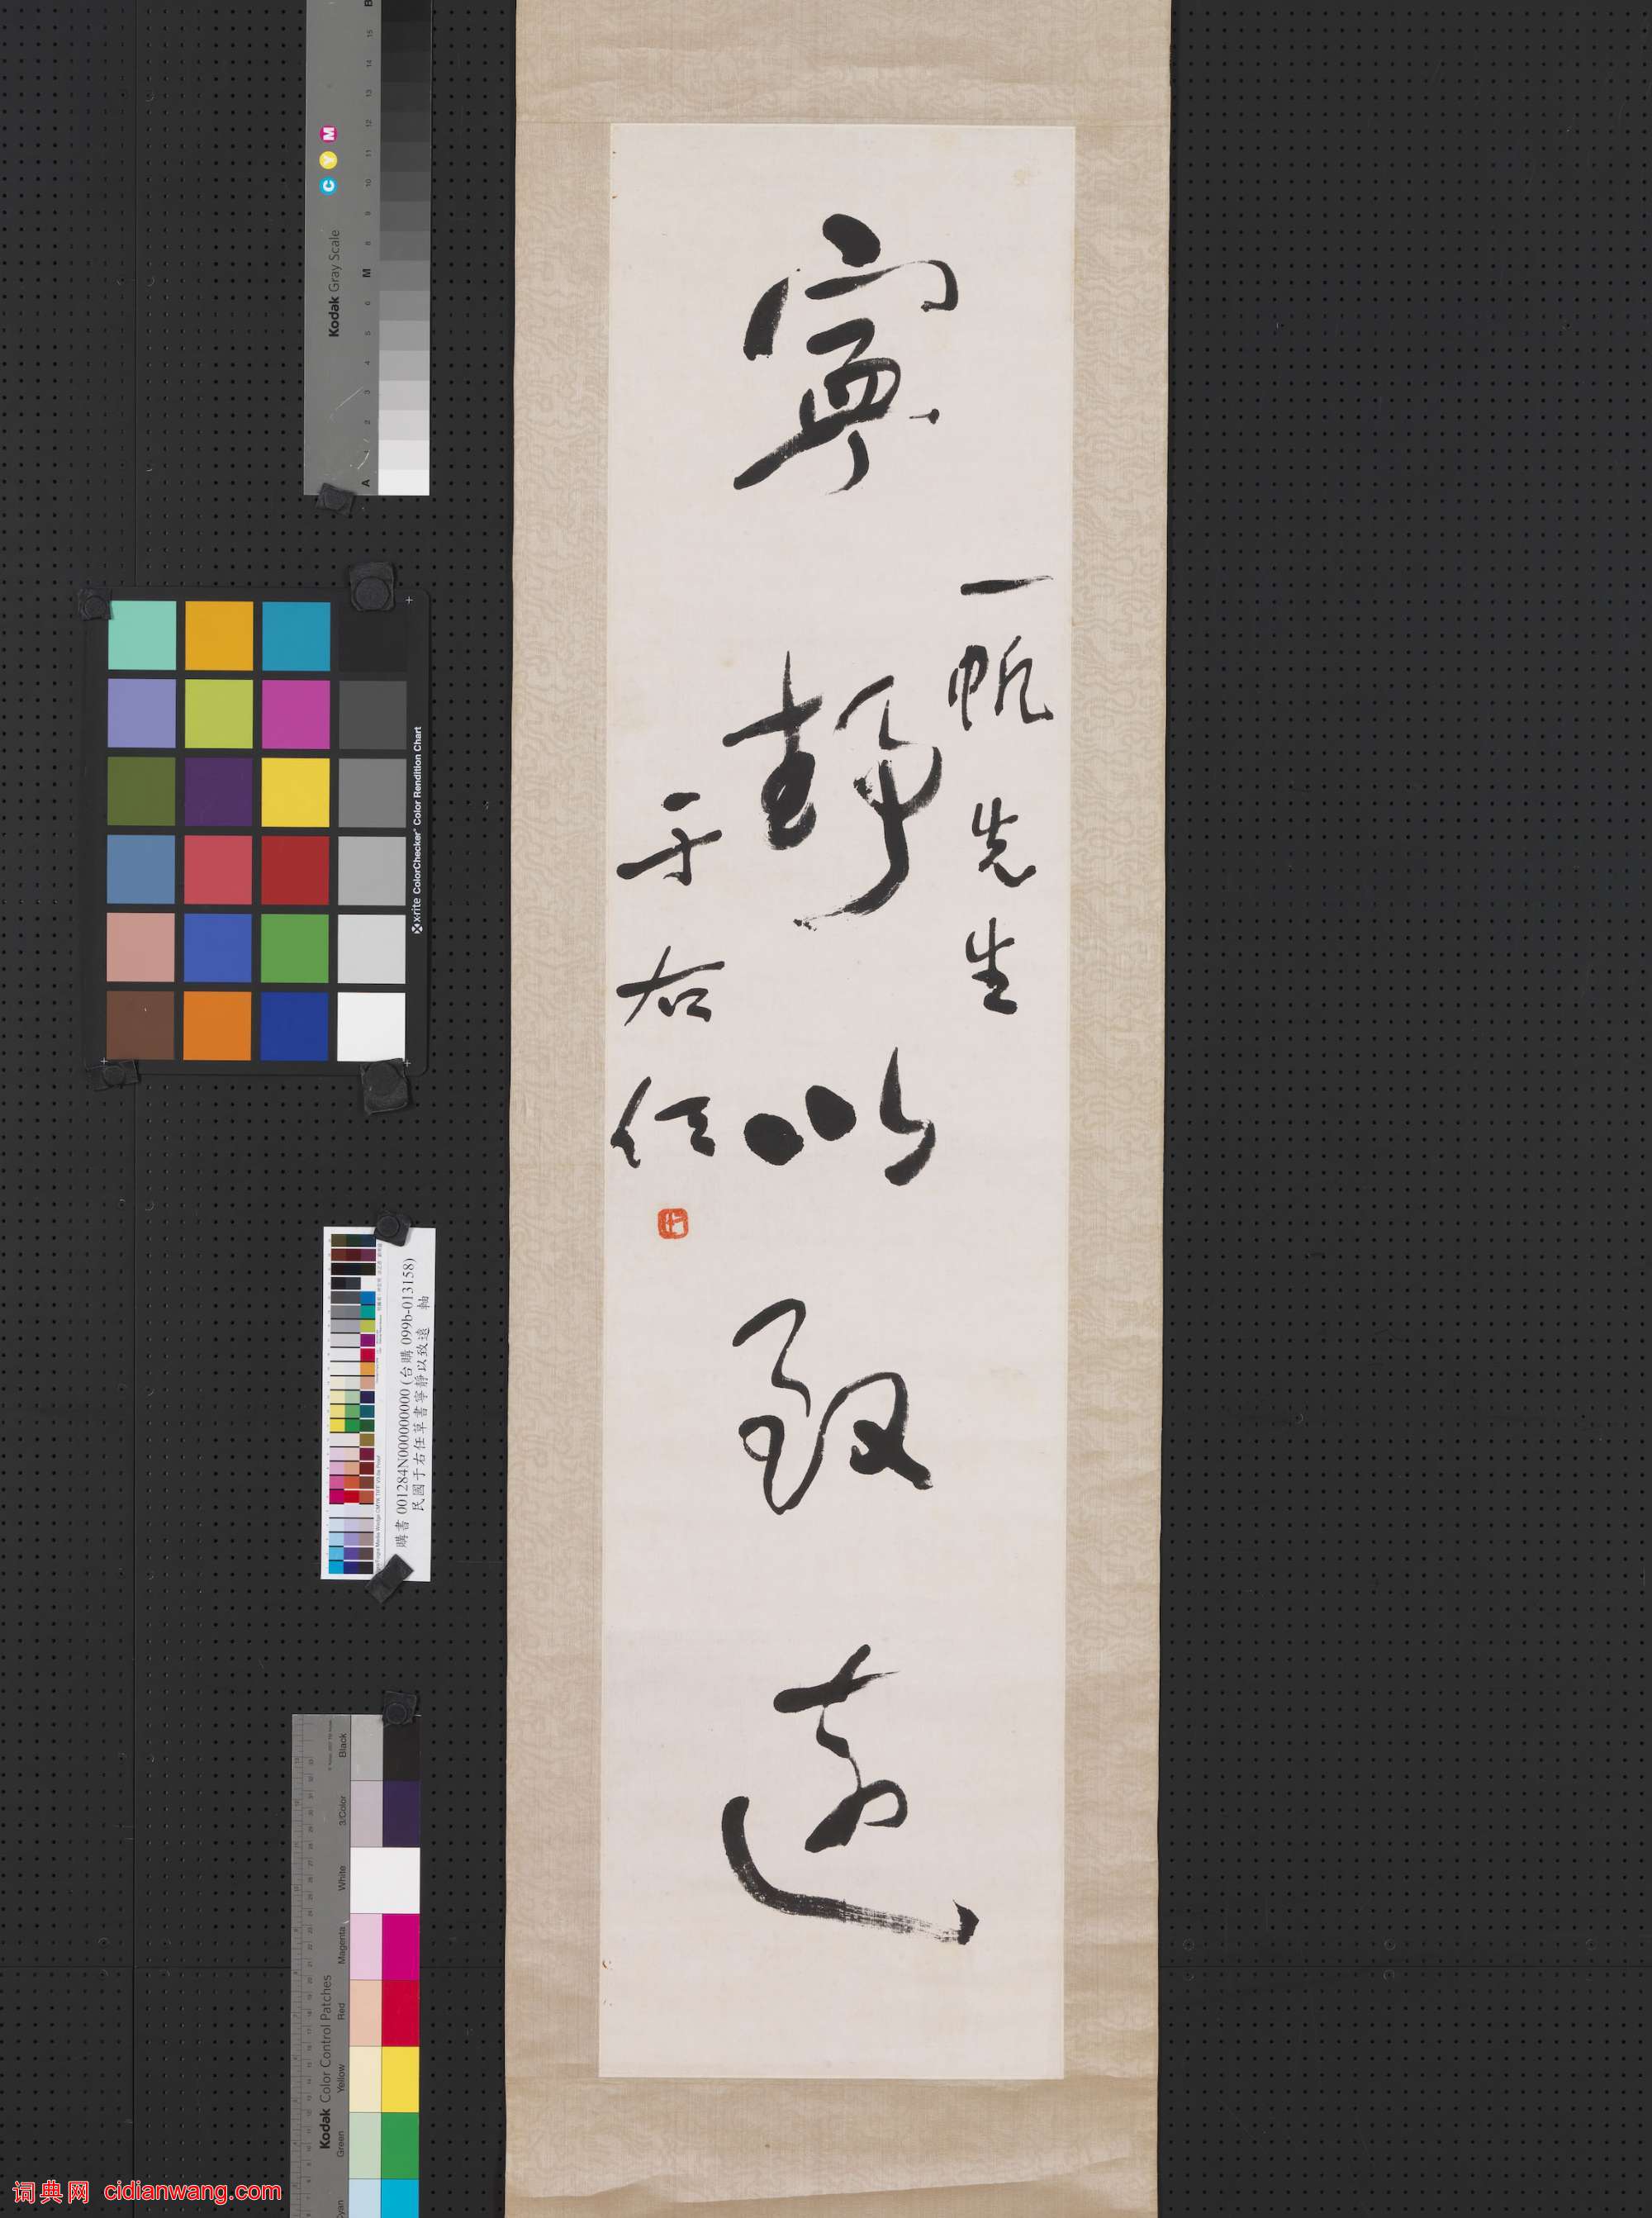 寧靜以致遠
一帆先生
于右任
Kodak Gray Scale
C Y M
A 1 2 3 4 5 6 M 8 9 10 11 12 13 14 15 B
x-rite ColorChecker Color Rendition Chart
購書 001284N000000000 (台購 099b-013158)
民國于右任草書寧靜以致遠 軸
Kodak Color Control Patches
Green Yellow Red Magenta White 3/Color Black
词典网 cidianwang.com